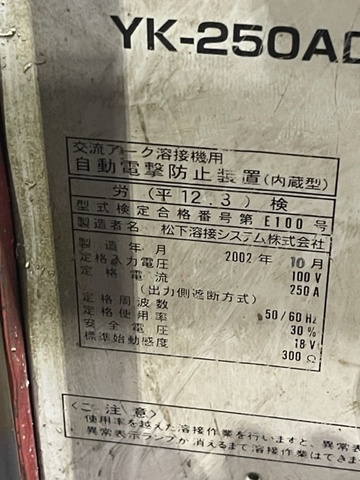 YK-250A
交流アーク溶接機用
自動電撃防止装置(内蔵型)
労(平12.3)検
型式検定合格番号第E100号
製造者名 松下溶接システム株式会社
製造年月 2002年10月
定格入力電圧 100V
定格電流 250A
(出力側遮断方式)
定格周波数 50/60Hz
定格使用率 30%
安全電圧 18V
標準始動感度 300Ω
〈ご注意〉
使用率を越えた溶接作業を行いますと、異常表
異常表示ランプが消えるまで溶接作業はできま